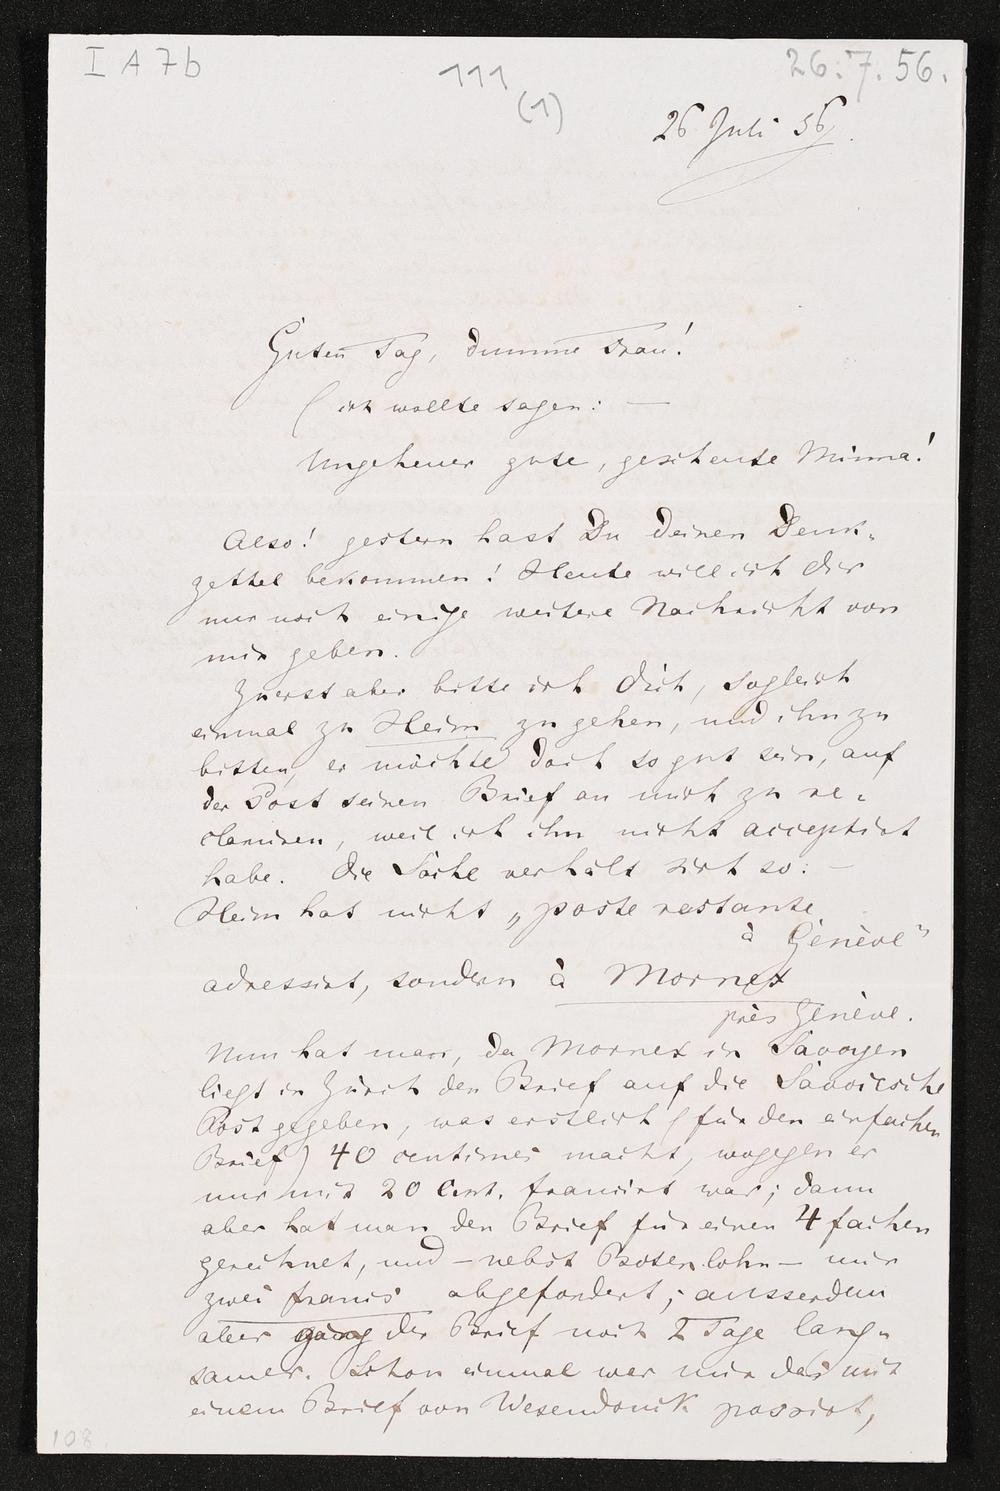 I A 7b
111
(1)
26.7.56.
26 Juli 56.
Guten Tag, dumme Frau!
(ich wollte sagen: —
Ungeheuer gute, gescheute Minna!
Also! gestern hast Du deinen Denk-
zettel bekommen! Heute will ich dir
nur noch einige weitere Nachricht von
mir geben.
Zuerst aber bitte ich dich, sogleich
einmal zu Heim zu gehen, und ihn zu
bitten, er möchte doch so gut sein, auf
der Post seinen Brief an mich zu re-
clamiren, weil ich ihn nicht acceptirt
habe. Die Sache verhält sich so: —
Heim hat nicht „poste restante
à Genève"
adressirt, sondern à Mornex
près Genève.
Nun hat man, da Mornex in Savoyen
liegt in Zürich den Brief auf die Savoische
Post gegeben, was erstlich (für den einfachen
Brief) 40 centimes macht, wogegen er
nur mit 20 Cent. francirt war; dann
aber hat man den Brief für einen 4fachen
gerechnet, und – nebst Botenlohn – mir
zwei francs abgefordert; ausserdem
aber ging der Brief noch 2 Tage lang-
samer. Schon einmal war mir das mit
einem Brief von Wesendonck passirt,
108